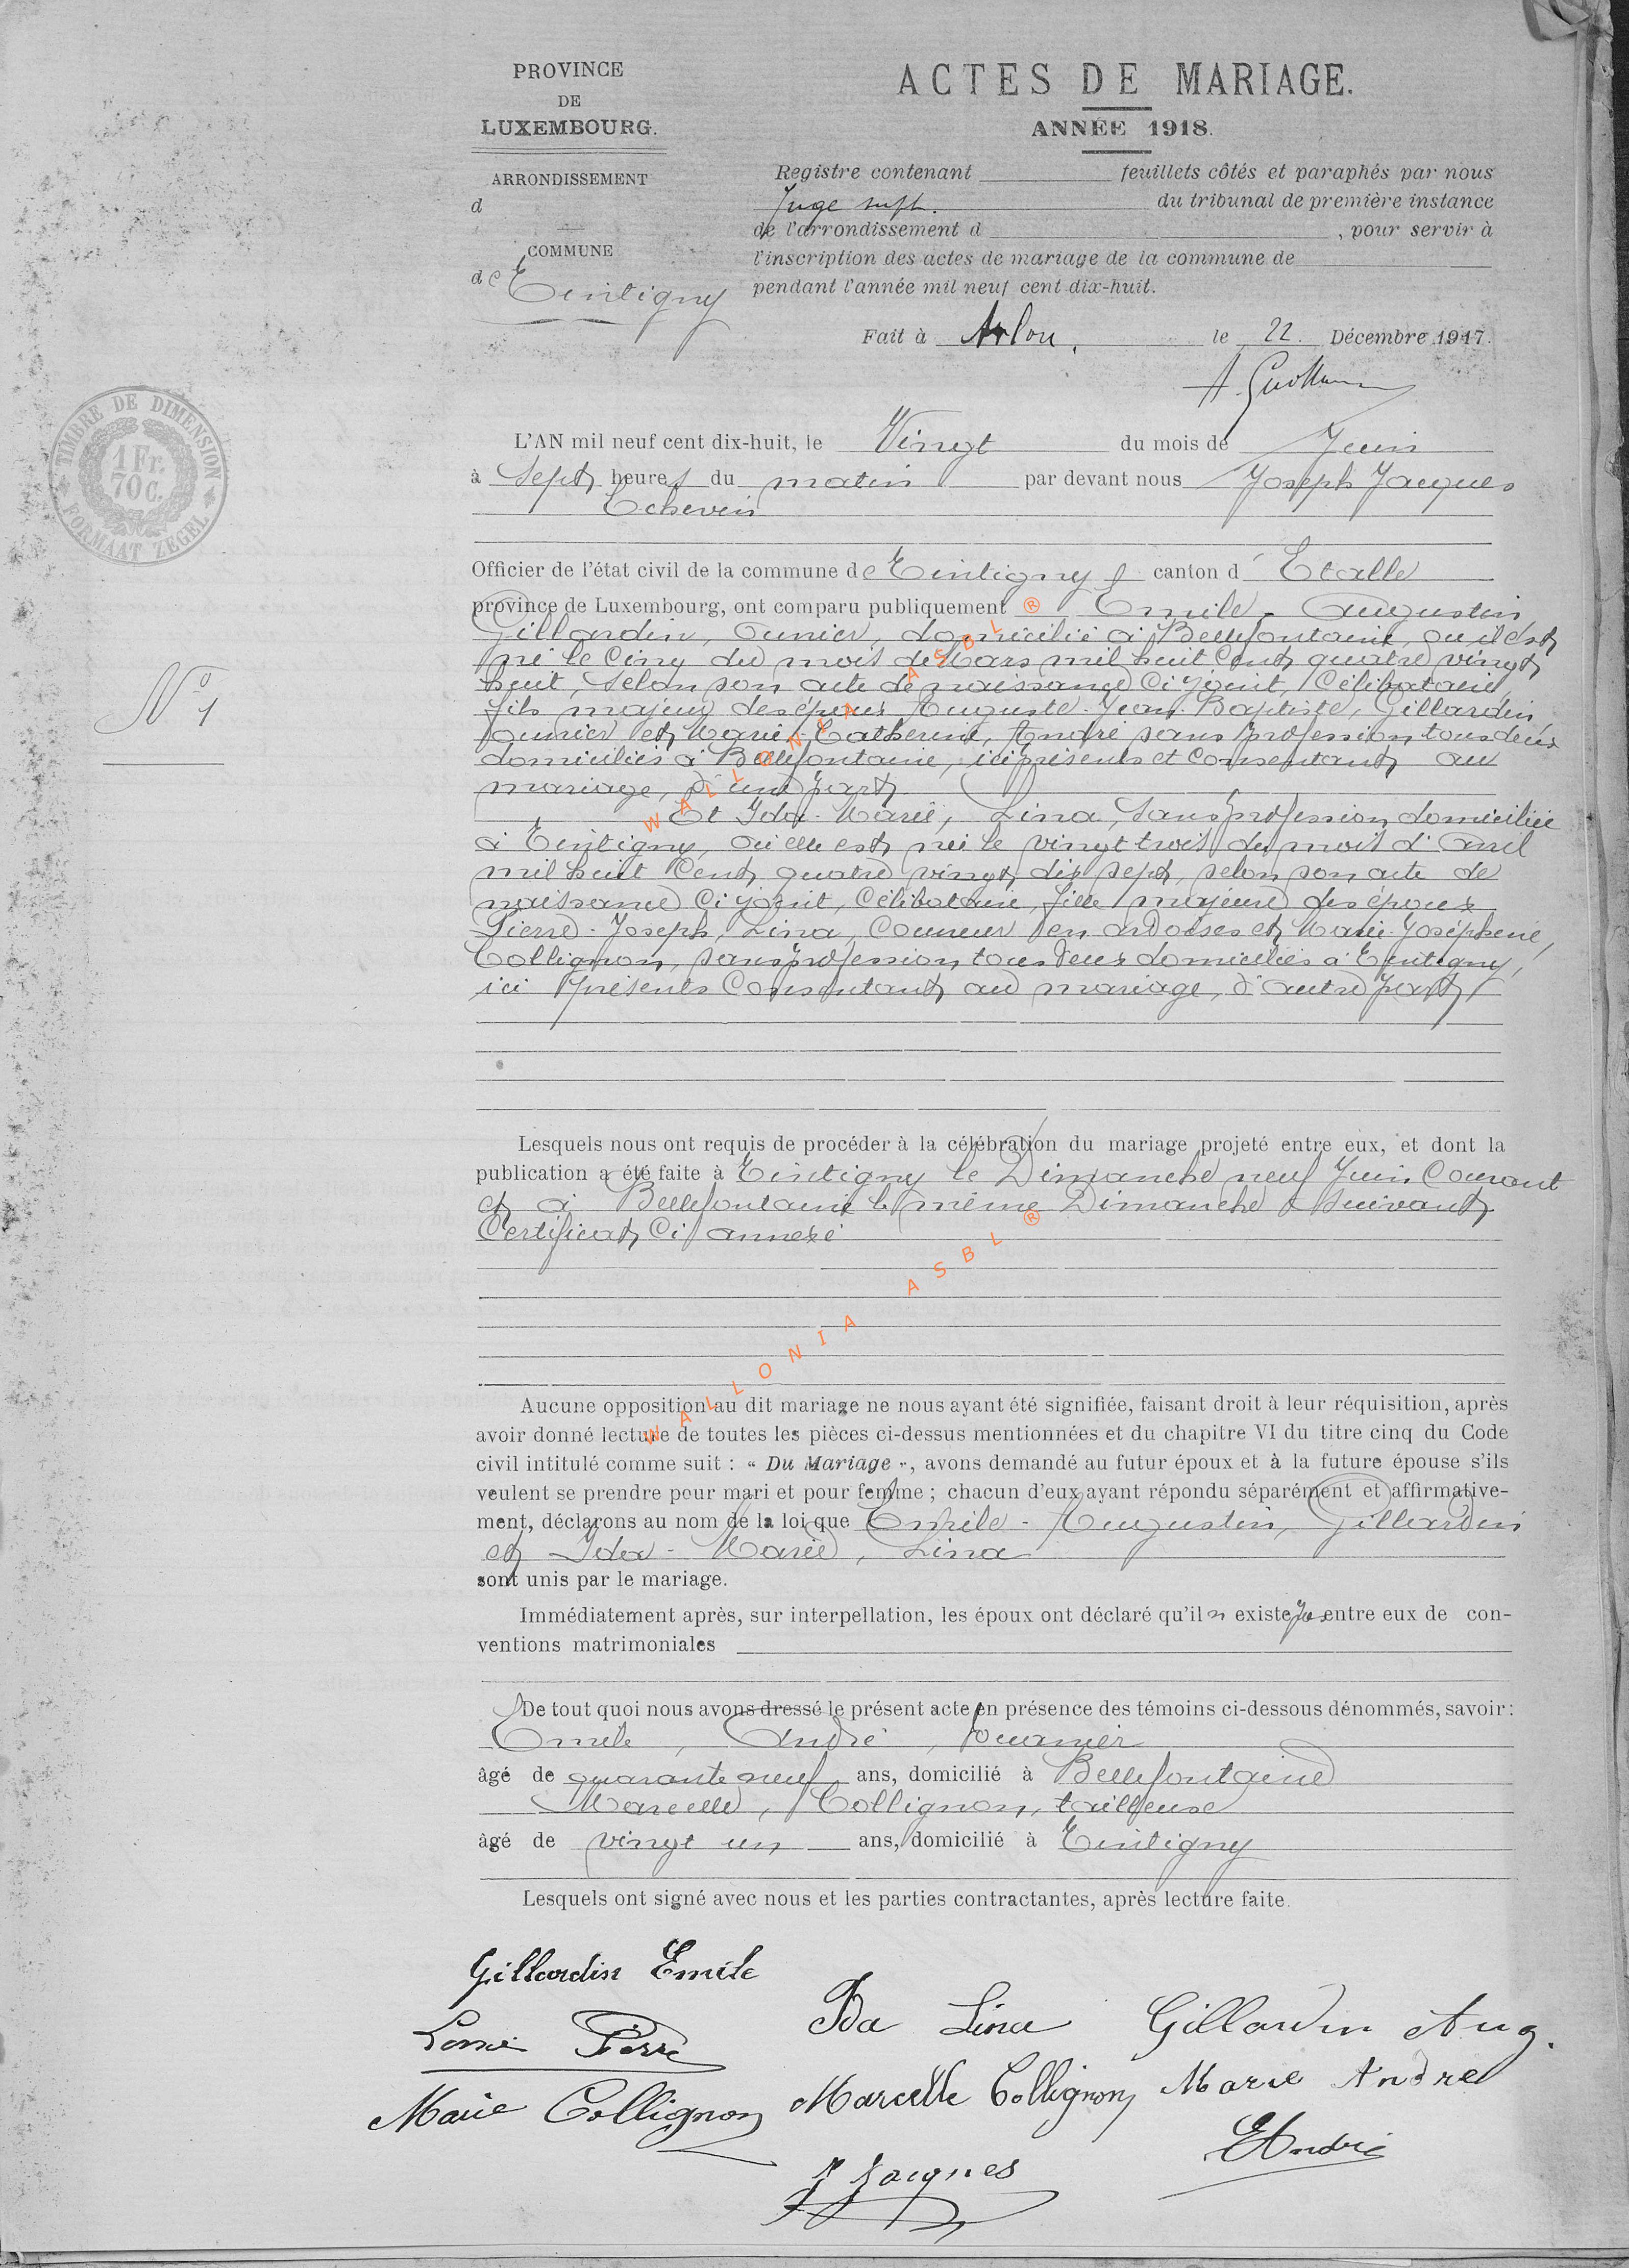 PROVINCE
DE
LUXEMBOURG.
ARRONDISSEMENT
d
COMMUNE
de Tintigny
ACTES DE MARIAGE.
ANNÉE 1918.
Registre contenant feuillets côtés et paraphés par nous
Juge supt. du tribunal de première instance
de l'arrondissement d , pour servir à
l'inscription des actes de mariage de la commune de
pendant l'année mil neuf cent dix-huit.
Fait à Arlon, le 22. Décembre 1917.
TIMBRE DE DIMENSION
1 Fr.
70 C.
FORMAAT ZEGEL
L'AN mil neuf cent dix-huit, le Vingt du mois de Juin
à Sept heures du matin par devant nous Joseph Jacques
Echevin
Officier de l'état civil de la commune de Tintigny canton d' Etalle
province de Luxembourg, ont comparu publiquement Emile - Augustin
Gillardin, Ouvrier, domicilié à Bellefontaine, où il est
né le Cinq du mois de Mars mil huit Cent quatre vingt
huit, selon son acte de naissance Ci joint, Célibataire,
N° 1
fils majeur des époux Auguste-Jean-Baptiste, Gillardin,
ouvrier et Marie-Catherine, André sans profession tous deux
domiciliés à Bellefontaine, ici présents et Consentant au
mariage, d'une part
Et Ida-Marie, Lina, Sans profession domiciliée
à Tintigny, où elle est née le vingt trois du mois d'Avril
mil huit Cent quatre vingt dix sept, selon son acte de
naissance Ci joint, Célibataire, fille majeure des époux
Pierre-Joseph, Lina, Couvreur en ardoises et Marie-Joséphine,
Collignon, sans profession tous deux domiciliés à Tintigny,
ici présents Consentant au mariage, d'autre part
Lesquels nous ont requis de procéder à la célébration du mariage projeté entre eux, et dont la
publication a été faite à Tintigny le Dimanche neuf Juin Courant
et à Bellefontaine le même Dimanche suivant
Certificat Ci annexé
Aucune opposition au dit mariage ne nous ayant été signifiée, faisant droit à leur réquisition, après
avoir donné lecture de toutes les pièces ci-dessus mentionnées et du chapitre VI du titre cinq du Code
civil intitulé comme suit : « Du Mariage », avons demandé au futur époux et à la future épouse s'ils
veulent se prendre pour mari et pour femme ; chacun d'eux ayant répondu séparément et affirmative-
ment, déclarons au nom de la loi que Emile - Augustin, Gillardin
et Ida - Marie, Lina
sont unis par le mariage.
Immédiatement après, sur interpellation, les époux ont déclaré qu'il n existe pas entre eux de con-
ventions matrimoniales
De tout quoi nous avons dressé le présent acte en présence des témoins ci-dessous dénommés, savoir :
Emile, André, ouvrier
âgé de quarante neuf ans, domicilié à Bellefontaine
Marcelle, Collignon, tailleuse
âgé de vingt un ans, domicilié à Tintigny
Lesquels ont signé avec nous et les parties contractantes, après lecture faite.
Gillardin Emile
Ida Lina Gillardin Aug.
Pierre
Marie Collignon Marcelle Collignon Marie André
E André
J Jacques
WALLONIA ASBL ®
WALLONIA ASBL ®